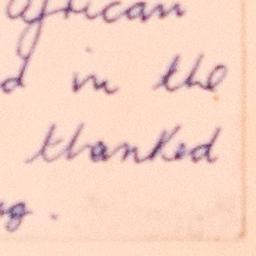 African
d in the
thanked